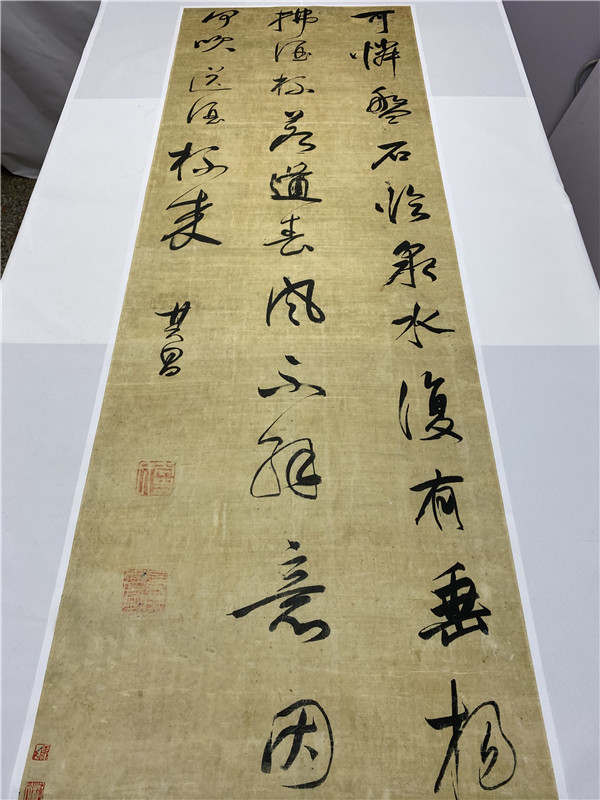 可憐盤石臨泉水復有垂楊
拂酒杯若道春風不解意因
何吹送酒杯來
其昌